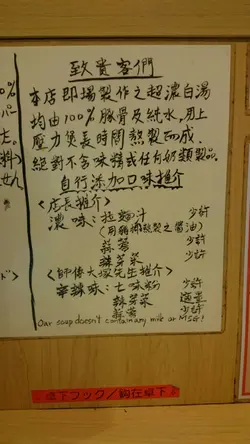 致貴客們
本店即場製作之超濃白湯
均由100%豚骨及純水，用上
壓力煲長時間熬製而成．
絕對不含味精或任何奶類製品．
自行添加口味推介
<店長推介>
濃味：拉麵汁 少許
(用豬骨熬製之醬油)
蒜蓉 少許
辣芽菜 少許
<師傅大塚先生推介>
辛辣味：七味粉 少許
辣芽菜 適量
蒜蓉 少許
Our soup doesn't contain any milk or MSG!
卓下フック/鈎在卓下
0%
パー
た。
料)
せん